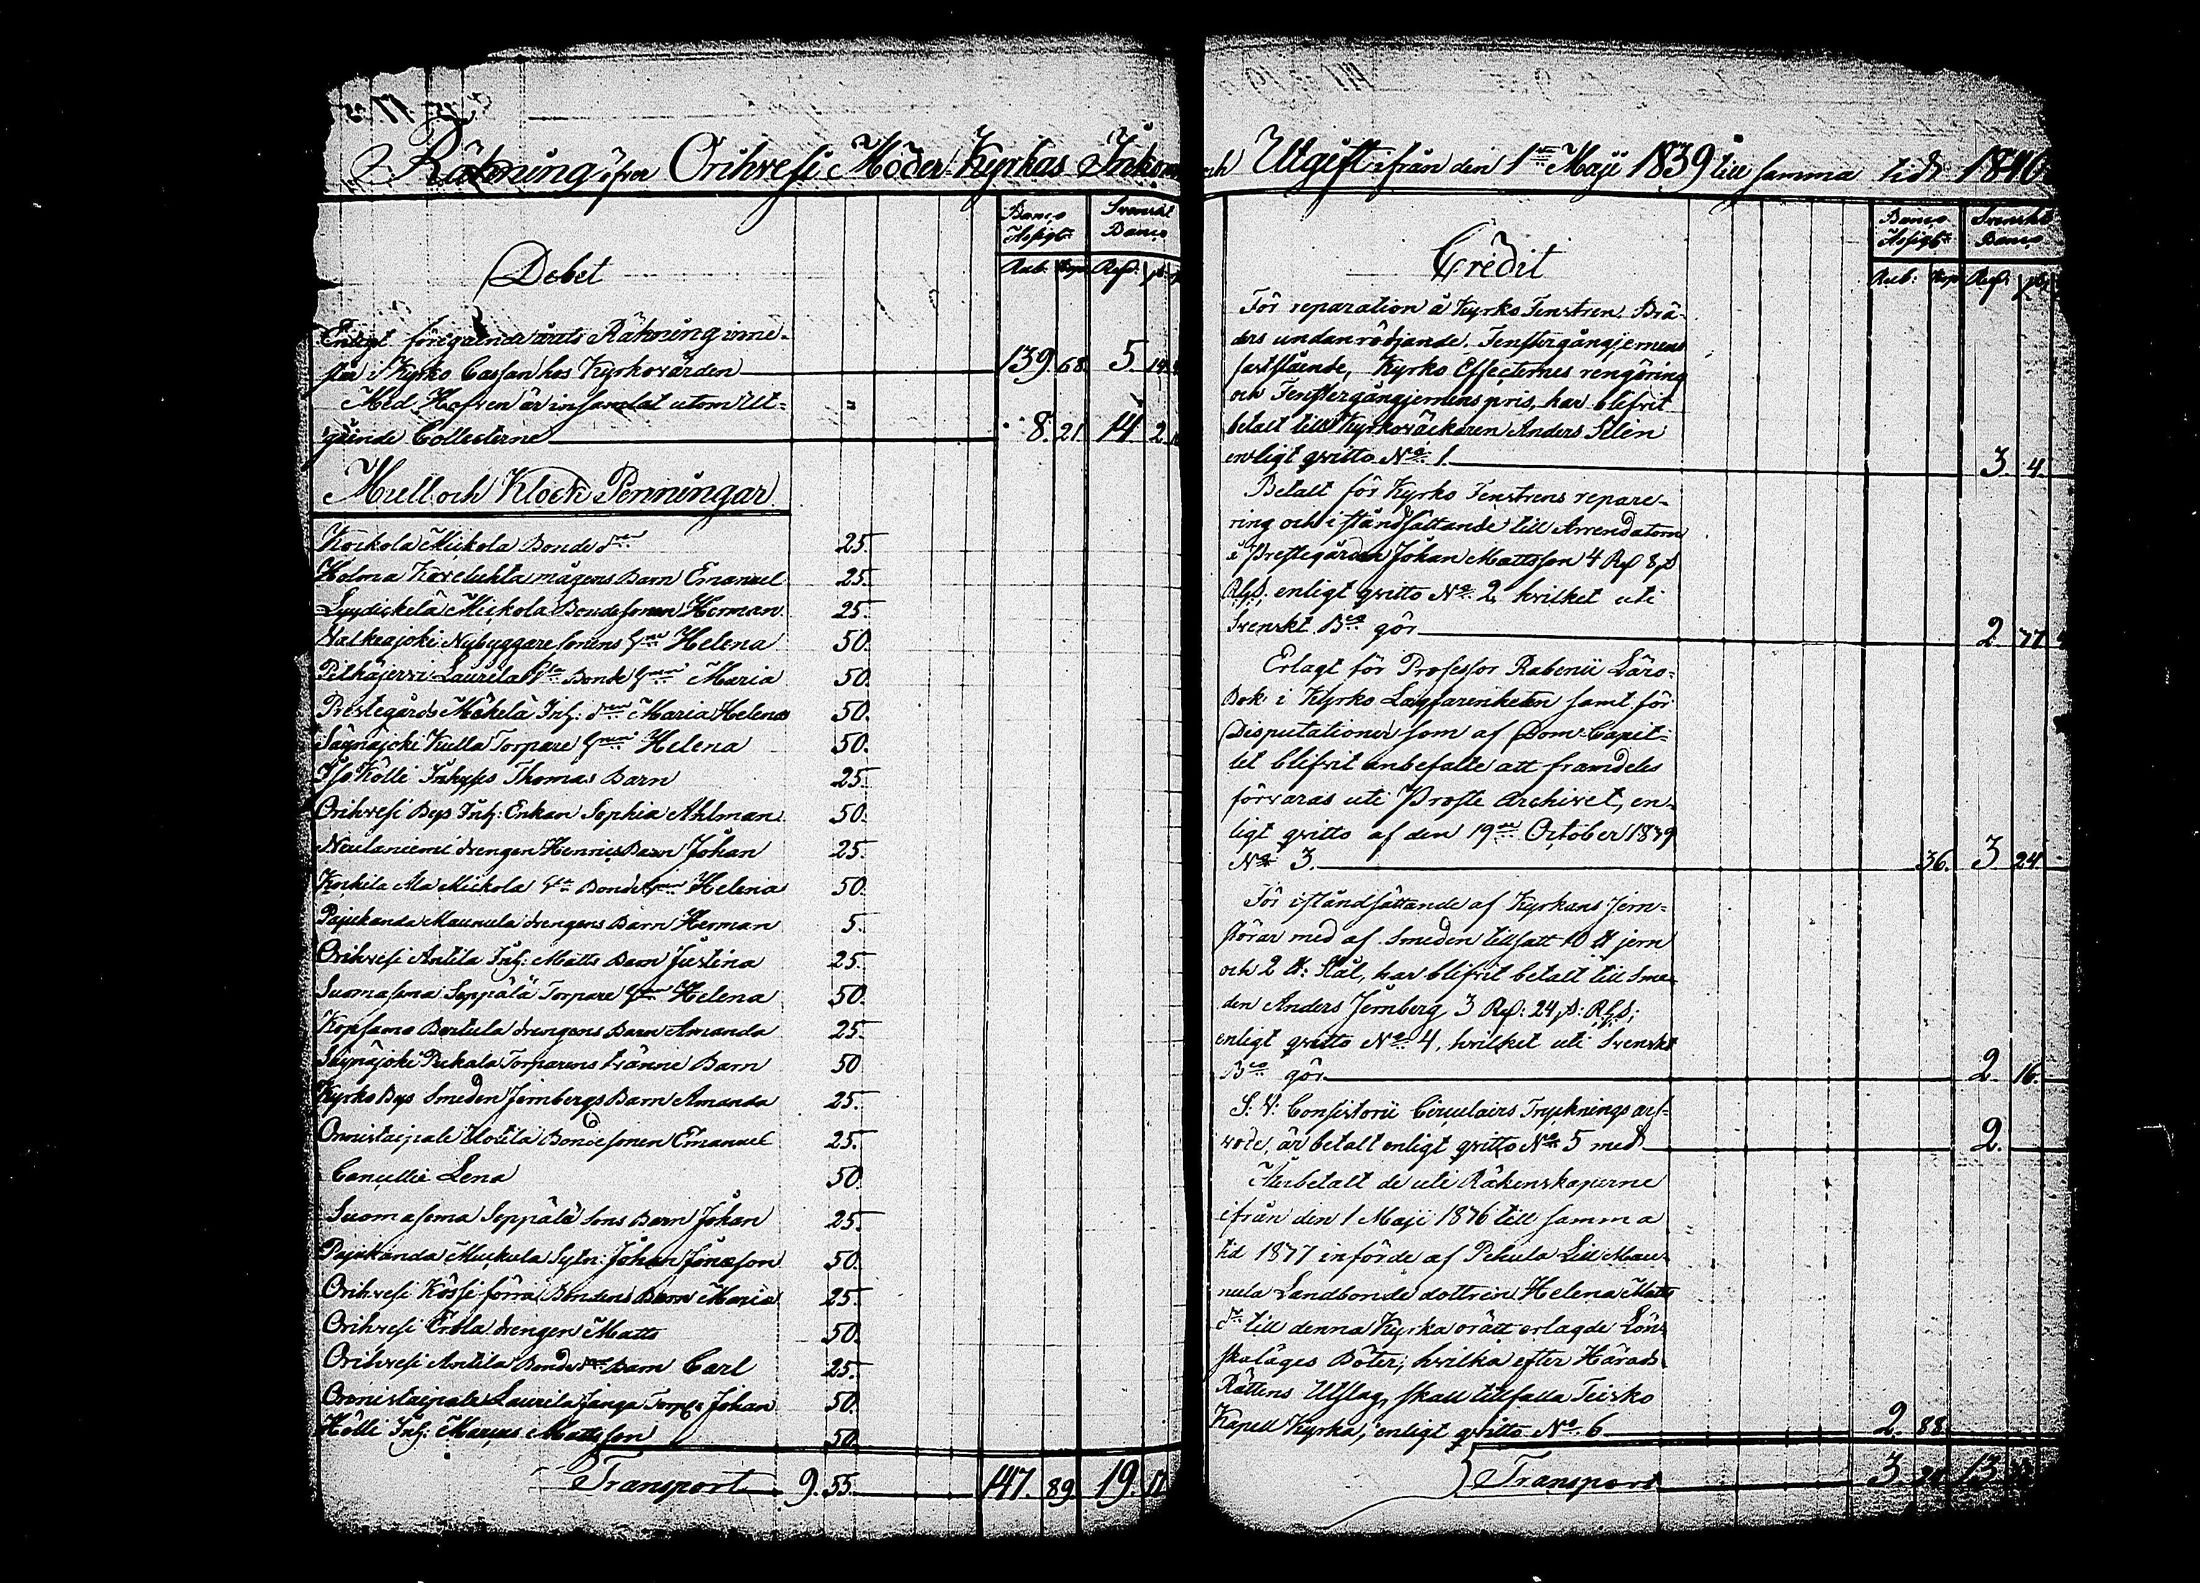 Räkning öfver Orihvesi Moder Kyrkas Inkom
ch Utgift ifrån den 1sta Maji 1839 till samma tid 1840
Debet
Banco Assigt:
Svenskt Banco
Rub: Kop: Rd: s:
Enligt föregående årets Räkning inne-
står i Kyrko Cassan hos Kyrkovärden 139. 68. 5. 14.
Med Hofven är insamlat utom Ut-
gående Collecterne 8. 21. 14. 2.
Mull och Klock Penningar
Kockola Mickola Bonde dr 25.
Holma Korelahta mågens Barn Emanuel 25.
Lyydickelä Mickola Bondesonen Herman 25.
Valkeajoki Nybyggare sonens hu Helena 50.
Pitkäjervi Laurila Bonde Maria 50.
Prestegårds Mäkelä Inh: Maria Helena 50.
Säynäjoki Kulla Torpare Helena 50.
Iso Kölli Inhyses Thomas Barn 25.
Orihvesi Bys Inh: Enkan Sophia Ahlman 50.
Neulaniemi drengen Henrics Barn Johan 25.
Kockila Ala Mickola Bonde Helena 50.
Pajukanda Maunula drengens Barn Herman 5.
Orihvesi Antila Inh: Matts Barn Justina 25.
Suomasema Seppälä Torpare Helena 50.
Kopsamo Bertula drengens Barn Amanda 25.
Säynäjoki Pukala Torparens tvänne Barn 50
Kyrko Bys Smeden Jernbergs Barn Amanda 25.
Onnistaipale Uotila Bondesonen Emanuel 25.
Lena 50.
Suomasema Seppälä Sons Barn Johan 25.
Pajukanda Muckula Sytn: Johan Jönsson 50.
Orihvesi Kössi förra Bondens Barn Maria 25.
Orihvesi Erola drengen Matts 50.
Orihvesi Antila Bonde Barn Carl 25.
Onnistaipale Laurila Janga Torp: Johan 50.
Hölli Inh: Marcus Mattsson 50.
Transport 9. 55. 147. 89. 19. 17
Credit
Banco Assigt:
Svenskt Banco
Rub: Kop: Rd:
För reparation å Kyrko Fenstren Brä-
ders undanrödjande, Fenstergångjernens
fastslående, Kyrko Effecternes rengöring
och Fenstergångjernens pris, har blifvit
betalt till Kyrkoväckaren Anders Selin
enligt qvitto No 1. 3. 4.
Betalt för Kyrko Fenstrens repare-
ring och iståndsättande till Arrendatorn
å Prestegården Johan Mattsson 4 Rd 8 s
Rgs. enligt qvitto No 2, hvilket uti
Svenskt Bco gör 2. 77.
Erlagt för Professor Rabenii Läro-
Bok i Kyrko Lagfarenheten samt för
Disputationer som af Dom-Capit-
let blifvit anbefalte att framdeles
förvaras uti Proste Archivet, en-
ligt qvitto af den 19de October 1839
No 3. 36. 3 24.
För iståndsättande af Kyrkans Jern-
störar med af Smeden tillsatt 10 ℔ jern
och 2 ℔: Stål, har blifvit betalt till Sme-
den Anders Jernberg 3 Rd: 24 s: Rgs;
enligt qvitto No 4, hvilket uti Svenskt
Bco gör 2. 16.
S: V: Consistorii Circulairs Trycknings arf-
vode, är betalt enligt qvitto No 5 med 2.
Återbetalt de uti Räkenskaperne
ifrån den 1 Maji 1836 till samma
tid 1837 införde af Pekula Lill Mau-
nula Landbonde dottren Helena Matts
dr till denna Kyrka orätt erlagde Löns-
skaläges Böter, hvilka efter Härads
Rättens Utslag, skall tillfalla Teisko
Kapell Kyrka, enligt qvitto No. 6 2. 88.
Transport 3. 24 13.